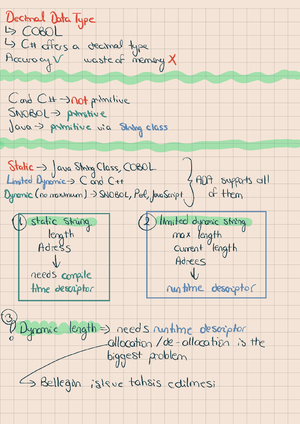 Decimal Data Type
↳ COBOL
↳ C# offers a decimal type
Accuracy ✓ waste of memory X
C and C++ → not primitive
SNOBOL → primitive
Java → primitive via String class
Static → Java String Class, COBOL
Limited Dynamic → C and C++
Dynamic (no maximum) → SNOBOL, Perl, JavaScript
ADA supports all
of them
1 static string
length
Adress
↓
needs compile
time descriptor
2 limited dynamic string
max length
current length
Adrees
↓
runtime descriptor
3
Dynamic length → needs runtime descriptor
allocation / de-allocation is the
biggest problem
↳ Belleğin işleve tahsis edilmesi